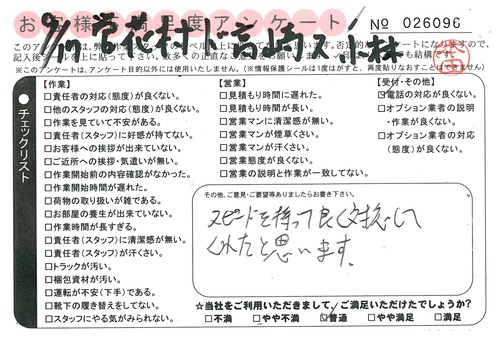 お客様満足度アンケート
№ 026096
9/17 営 花村 下 高崎 ス 小林
※このアンケートは、アンケート目的以外には使用いたしません。(※情報保護シールは1度はがすと、再度貼りなおすことはできません)
チェックリスト
【作業】
□責任者の対応(態度)が良くない。
□他のスタッフの対応(態度)が良くない。
□作業を見ていて不安がある。
□責任者(スタッフ)に好感が持てない。
□お客様への挨拶が出来ていない。
□ご近所への挨拶・気遣いが無い。
□作業開始前の内容確認がなかった。
□作業開始時間が遅れた。
□荷物の取り扱いが雑である。
□お部屋の養生が出来ていない。
□作業時間が長すぎる。
□責任者(スタッフ)に清潔感が無い。
□責任者(スタッフ)が汗くさい。
□トラックが汚い。
□梱包資材が汚い。
□運転が不安(下手)である。
□靴下の履き替えをしてない。
□スタッフにやる気がみられない。
【営業】
□見積もり時間に遅れた。
□見積もり時間が長い。
□営業マンに清潔感が無い。
□営業マンが煙草くさい。
□営業マンが汗くさい。
□営業態度が良くない。
□営業の説明と作業が一致してない。
【受付・その他】
□電話の対応が良くない。
□オプション業者の説明
・作業が良くない。
□オプション業者の対応
(態度)が良くない。
その他、ご意見・ご要望等ありましたらお書き下さい。
スピードを持って良く対応して
くれたと思います。
☆当社をご利用いただきまして、ご満足いただけたでしょうか?
□不満 □やや不満 ☑普通 □やや満足 □満足